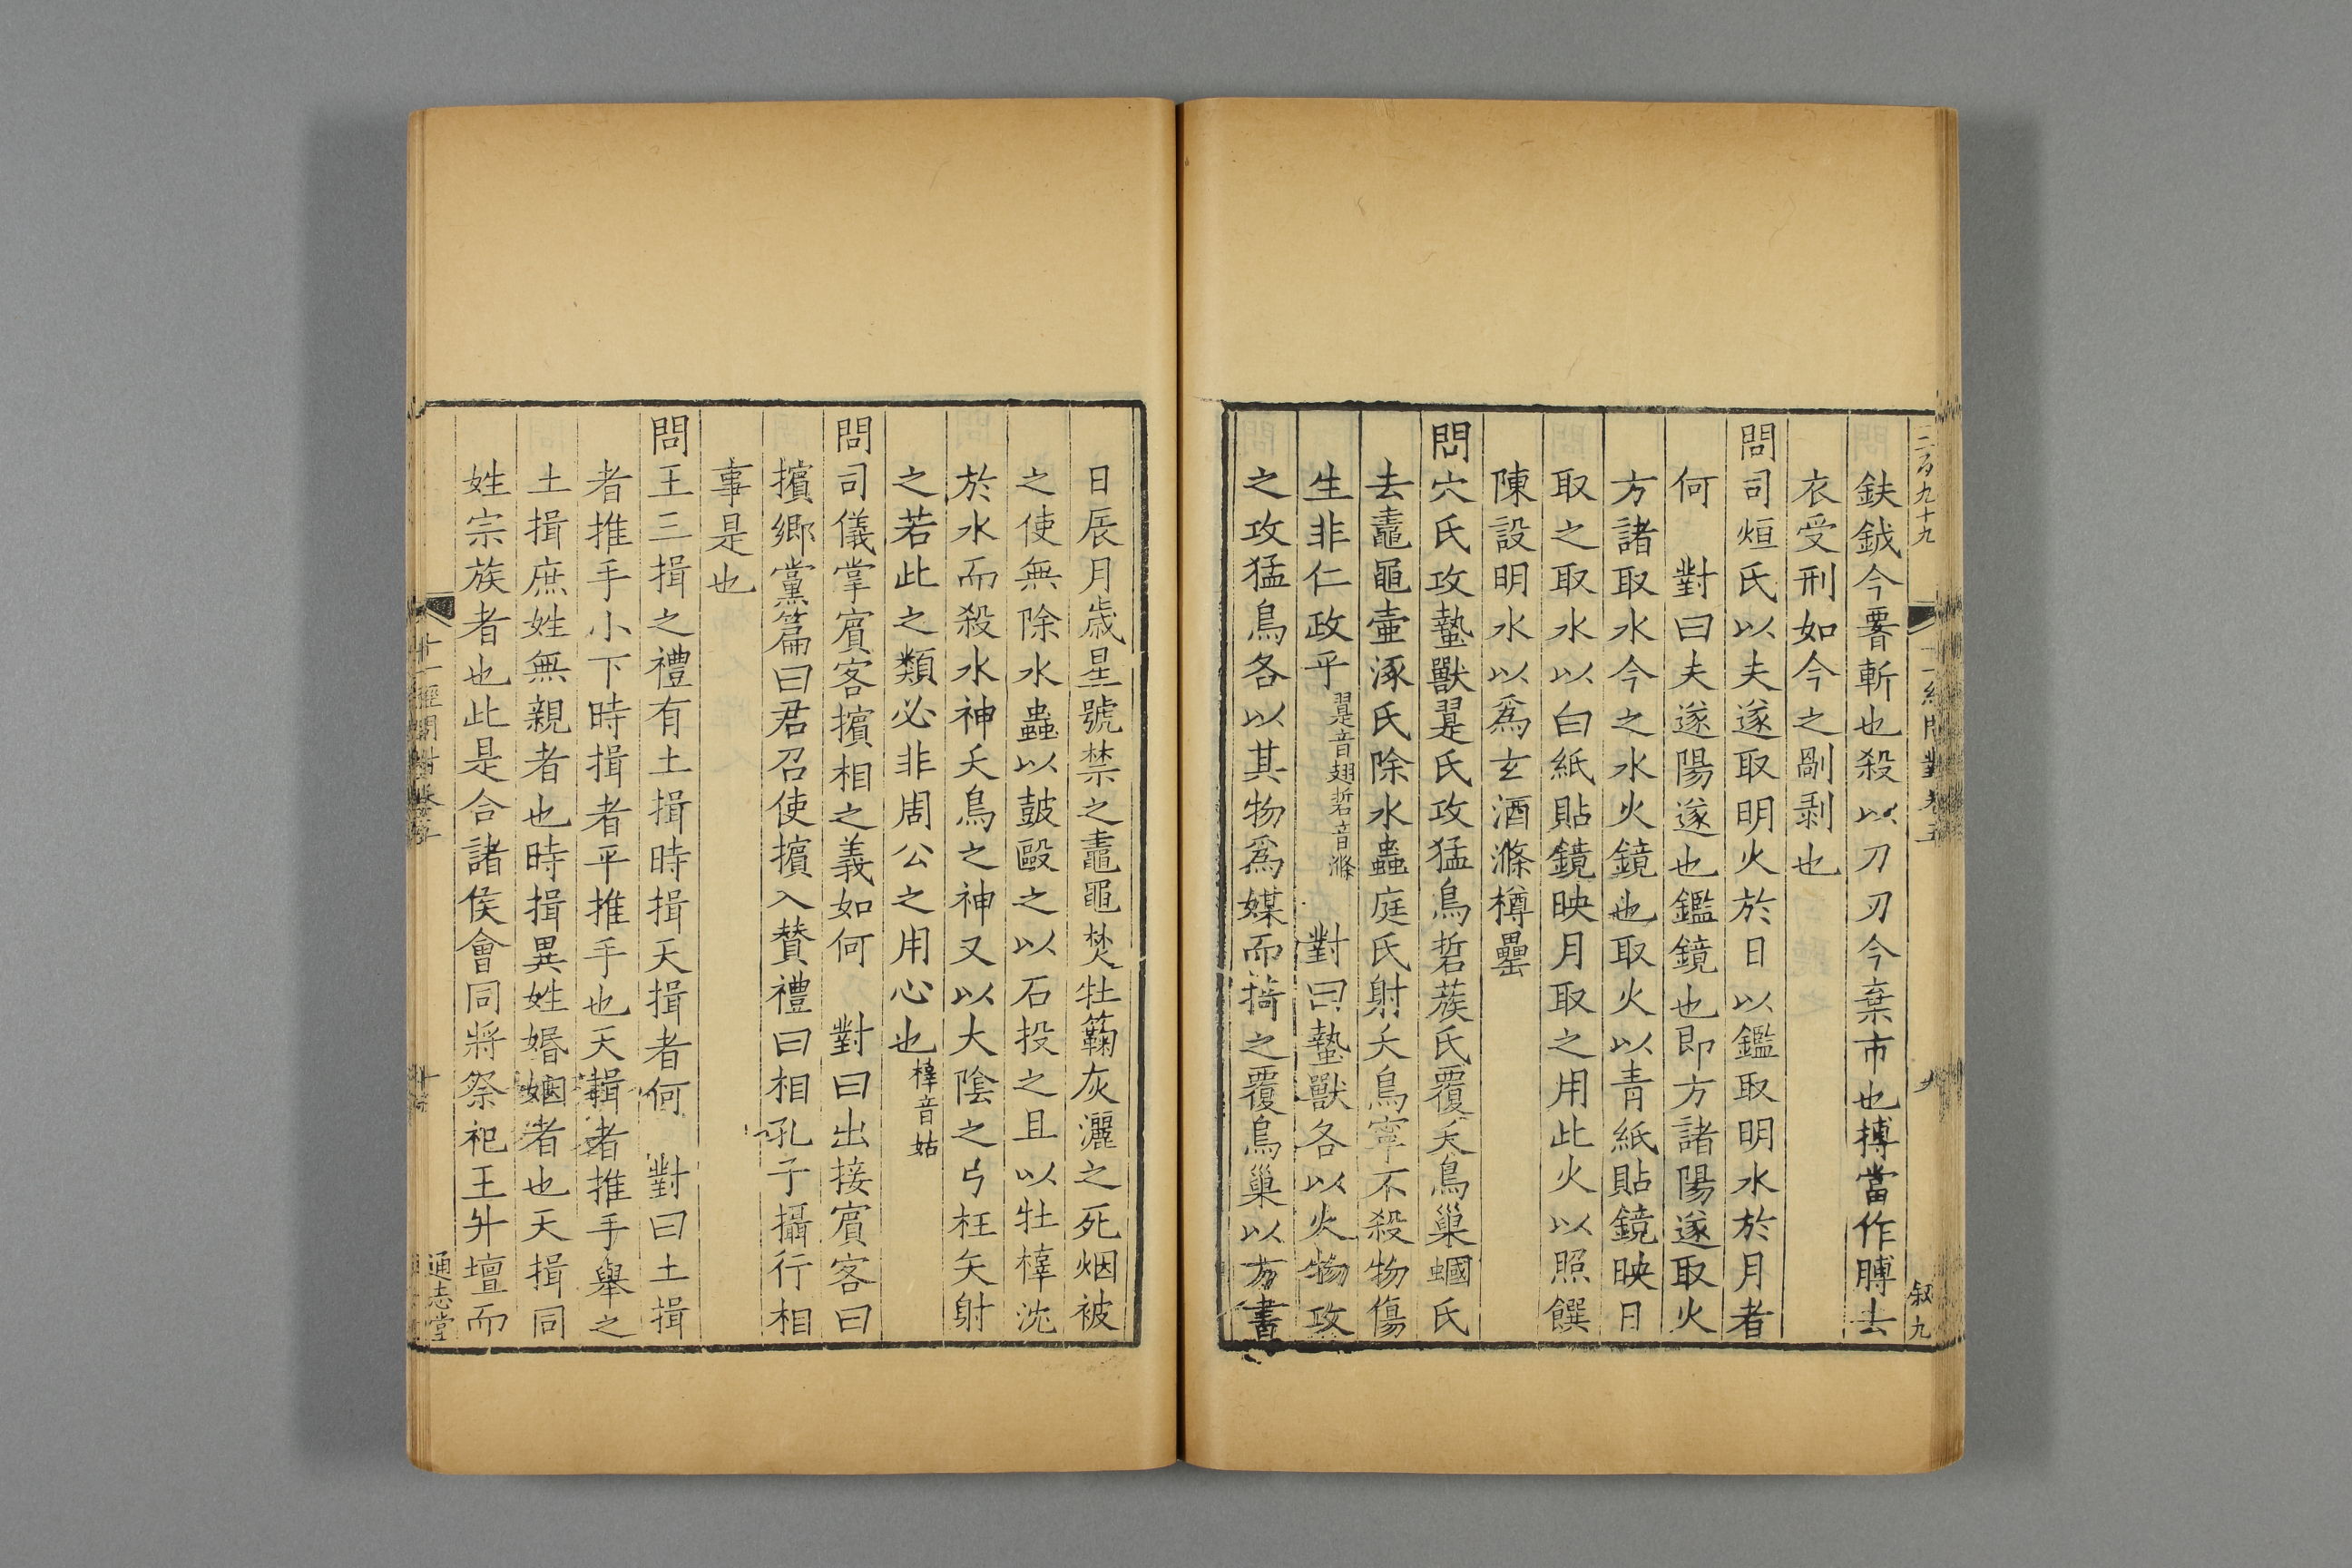 二百九十九
十一經問對 卷五
九
叙九
鈇鉞今䁂斬也殺以刀刃今棄市也搏當作膊去
衣受刑如今之剮剥也
問司烜氏以夫遂取明火於日以鑑取明水於月者
何 對曰夫遂陽遂也鑑鏡也即方諸陽遂取火
方諸取水今之水火鏡也取火以青紙貼鏡映日
取之取水以白紙貼鏡映月取之用此火以照饌
陳設明水以爲玄酒滌樽罍
問穴氏攻蟄獸翨氏攻猛鳥硩蔟氏覆夭鳥巢蟈氏
去鼃黽壷涿氏除水蟲庭氏射夭鳥寧不殺物傷
生非仁政乎翨音翅硩音滌 對曰蟄獸各以火物攻
之攻猛鳥各以其物爲媒而掎之覆鳥巢以方書
日辰月歳星號禁之鼃黽焚牡蘜灰灑之死烟被
之使無除水蟲以鼓毆之以石投之且以牡橭沈
於水而殺水神夭鳥之神又以大陰之弓枉矢射
之若此之類必非周公之用心也橭音姑
問司儀掌賓客擯相之義如何 對曰出接賓客曰
擯鄉黨篇曰君召使擯入賛禮曰相孔子攝行相
事是也
問王三揖之禮有土揖時揖天揖者何 對曰土揖
者推手小下時揖者平推手也天輯者推手舉之
土揖庶姓無親者也時揖異姓婚姻者也天揖同
姓宗族者也此是合諸侯會同將祭祀王升壇而
十一經問對 卷五
十
通志堂